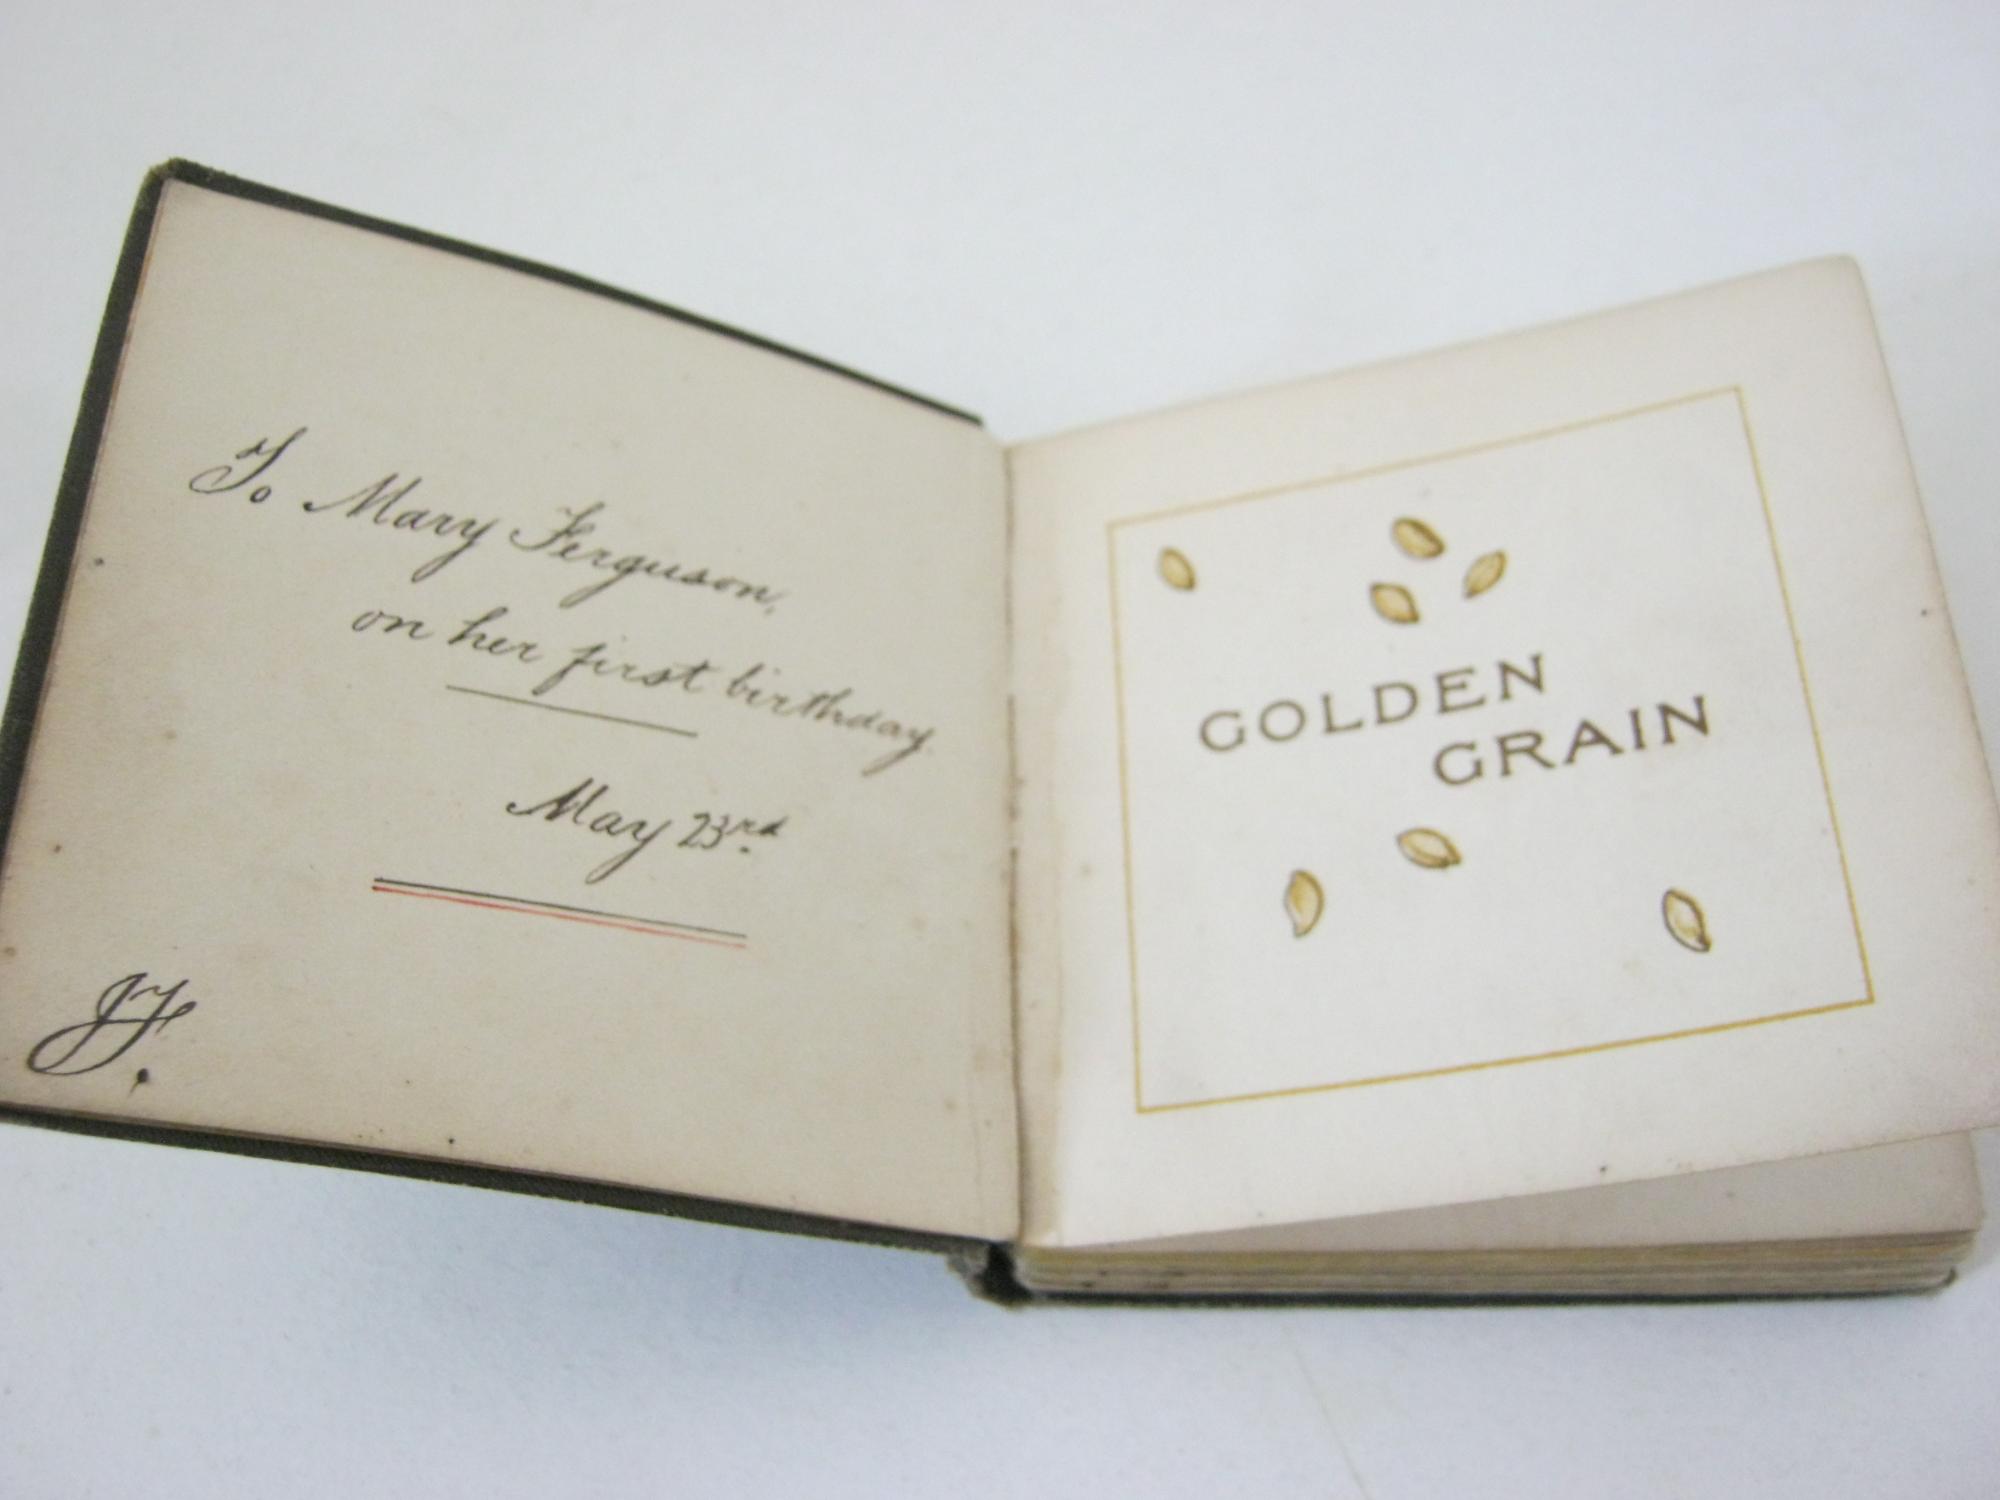 To Mary Ferguson,
on her first birthday.
May 23rd
JF.
GOLDEN
GRAIN